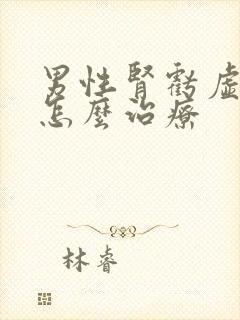 男性腎虧虛
怎麼治療
林睿